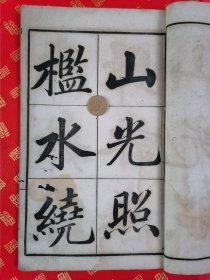 山光照
檻水繞